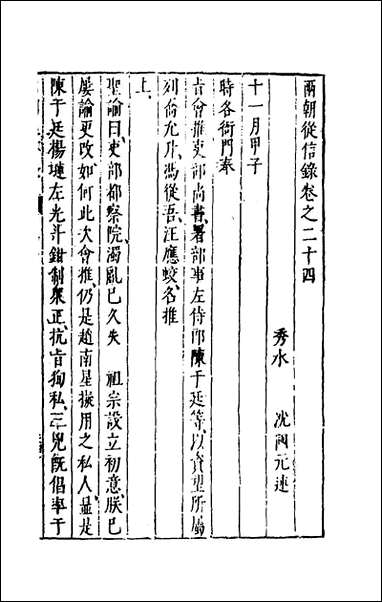 兩朝從信錄卷之二十四
秀水 沈國元述
十一月甲子
時各衙門奉
旨會推吏部尚書署部事左侍郎陳于廷等以資望所屬
列喬允升馮從吾汪應蛟名推
上
聖諭曰吏部都察院濁亂已久失 祖宗設立初意朕已
屢諭更改如何此次會推仍是趙南星擬用之私人盡是
陳于廷楊漣左光斗鉗制衆正抗旨狥私三兇旣倡率于